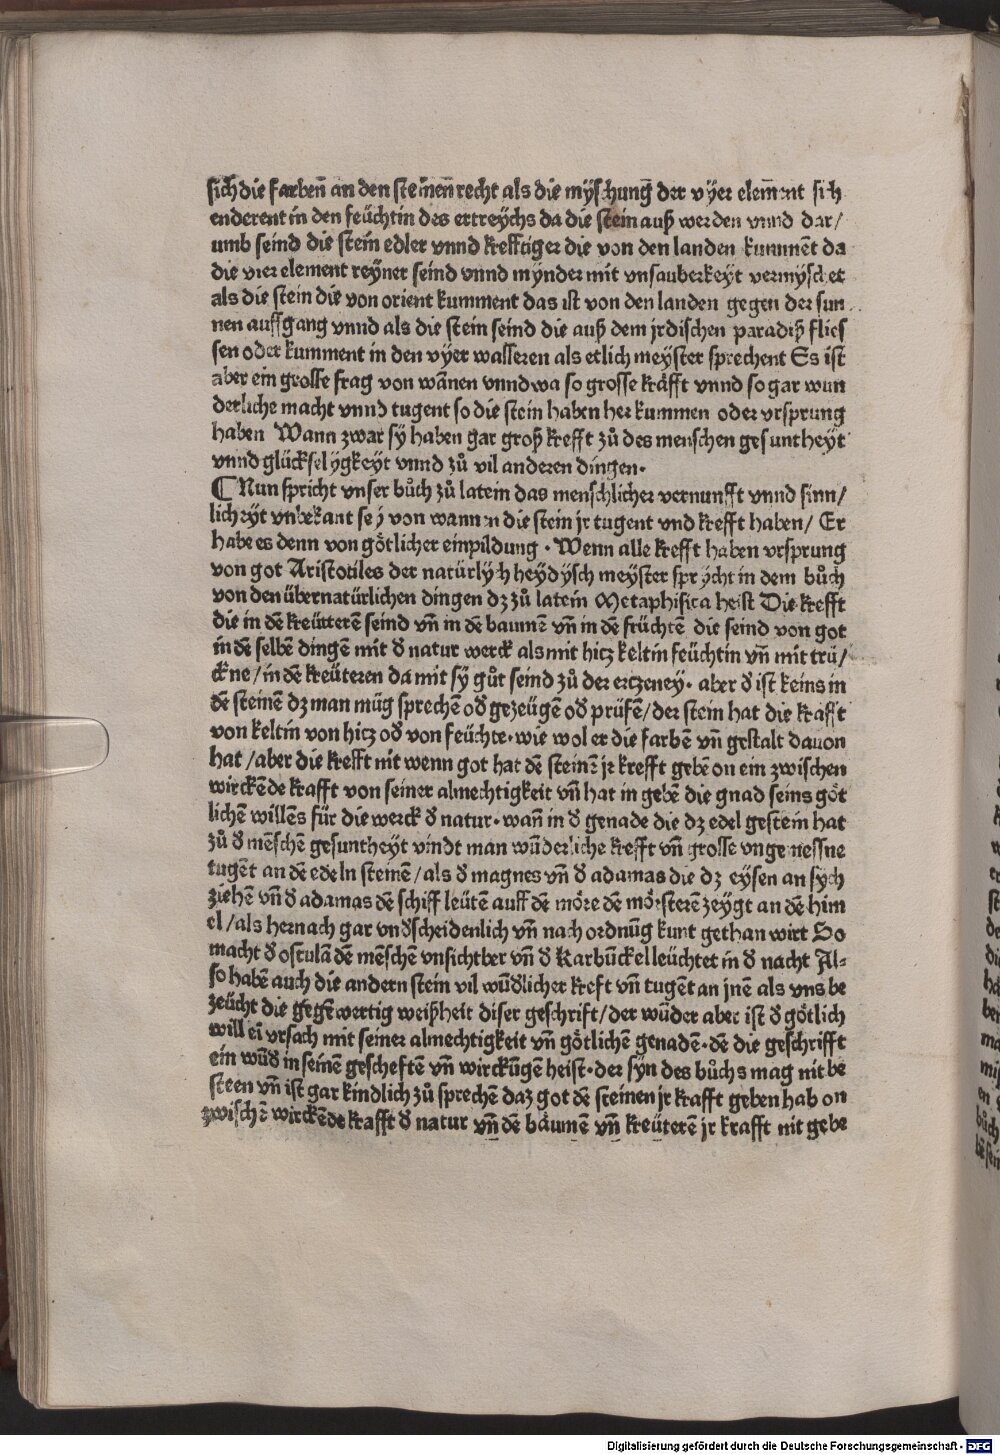 sich die farbenn̄ an den steinenn recht als die mÿschung der vÿer elemēnt sich
enderent in den feüchtin des ertreÿchs da die stein auß werden vnnd dar/
umb seind die stein edler vnnd krefftiger die von den landen kummēt da
die vier element reÿner seind vnnd mÿnder mit vnsauberkeÿt vermÿschet
als die stein die von orient kumment das ist von den landen gegen der sun
nen auffgang vnnd als die stein seind die auß dem jrdischen paradiß flies
sen oder kumment in den vÿer wasseren als etlich meÿster sprechent Es ist
aber ein grosse frag von wānen vnnd wa so grosse kräfft vnnd so gar wun
derliche macht vnnd tugent so die stein haben her kummen oder vrsprung
haben Wann zwar sÿ haben gar groß krefft zů des menschen gesuntheÿt
vnnd glückselÿgkeÿt vnnd zů vil anderen dingen.
¶ Nun spricht vnser bůch zů latein das menschlicher vernunfft vnnd sinn/
licheÿt vnbekant seÿ von wannen die stein jr tugent vnd krefft haben/ Er
habe es denn von götlicher einpildung. Wenn alle krefft haben vrsprung
von got Aristotiles der natürlÿch heÿdÿsch meÿster sprÿcht in dem bůch
von den übernatürlichen dingen dz zů latein Metaphisica heist Die krefft
die in dē kreütterē seind vn̄ in dē baumē vn̄ in dē früchtē die seind von got
in dē selbē dingē mit d̕ natur werck als mit hicz keltin feüchtin vn̄ mit trü/
ckne/in dē kreüteren da mit sÿ gůt seind zů der ertzeneÿ. aber d̕ ist keins in
dē steinē dz man müg sprechē od̕ gezeügē od̕ prüfē/der stein hat die krafft
von keltin von hicz od̕ von feüchte.wie wol er die farbē vn̄ gestalt dauon
hat/aber die krefft nit wenn got hat dē steinē jr krefft gebē on ein zwischen
wirckēde krafft von seiner almechtigkeit vn̄ hat in gebē die gnad seins göt
lichē willēs für die werck d̕ natur.wan̄ in d̕ genade die dz edel gestein hat
zů d̕ mēschē gesuntheÿt vindt man wūderliche krefft vn̄ grosse vngemessne
tugēt an dē edeln steinē/als d̕ magnes vn̄ d̕ adamas die dz eÿsen an sÿch
ziehē vn̄ d̕ adamas dē schiff leütē auff dē möre dē mör sterē zeÿgt an dē him
el/als hernach gar vnd̕scheidenlich vn̄ nach ordnūg kunt gethan wirt So
macht d̕ ostulā dē mēschē vnsichtber vn̄ d̕ Karbūckel leüchtet in d̕ nacht Al⸗
so habē auch die andern stein vil wūd̕licher kreft vn̄ tugēt an jnē als vns be
zeücht die gegēwertig weißheit diser geschrift/der wūder aber ist d̕ götlich
will ei̅ vrsach mit seiner almechtigkeit vn̄ götlichē genadē.dē die geschrifft
ein wūd̕ in seinē gescheftē vn̄ wirckūgē heist.der sÿn des bůchs mag nit be
steen vn̄ ist gar kindlich zů sprechē daz got dē steinen jr krafft geben hab on
zwischē wirckēde krafft d̕ natur vn̄ dē bäumē vn̄ kreüterē jr krafft nit gebe
Digitalisierung gefördert durch die Deutsche Forschungsgemeinschaft - DFG